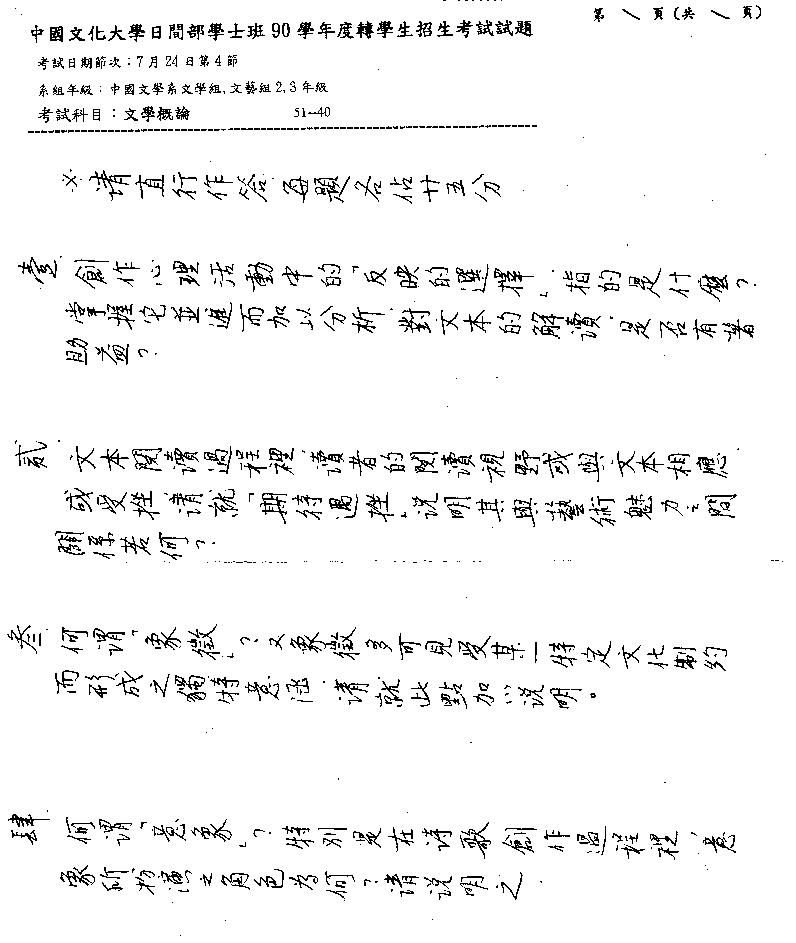 第 1 頁(共 1 頁)
中國文化大學日間部學士班90學年度轉學生招生考試試題
考試日期節次:7月24日第4節
系組年級:中國文學系文學組,文藝組2,3年級
考試科目:文學概論 51-40
※請直行作答 每題各佔廿五分
壹 創作心理活動中的「反映的選擇」指的是什麼?
掌握它並進而加以分析,對文本的解讀,是否有著
助益?
貳 文本閱讀過程裡,讀者的閱讀視野或與文本相應
或受挫,請就「期待遇挫」說明其與藝術魅力之間
關係若何?
叁 何謂「象徵」?又象徵多可見受某一特定文化制約
而形成之獨特意涵,請就此點加以說明。
肆 何謂「意象」?特別是在詩歌創作過程裡,意
象所扮演之角色為何?請說明之